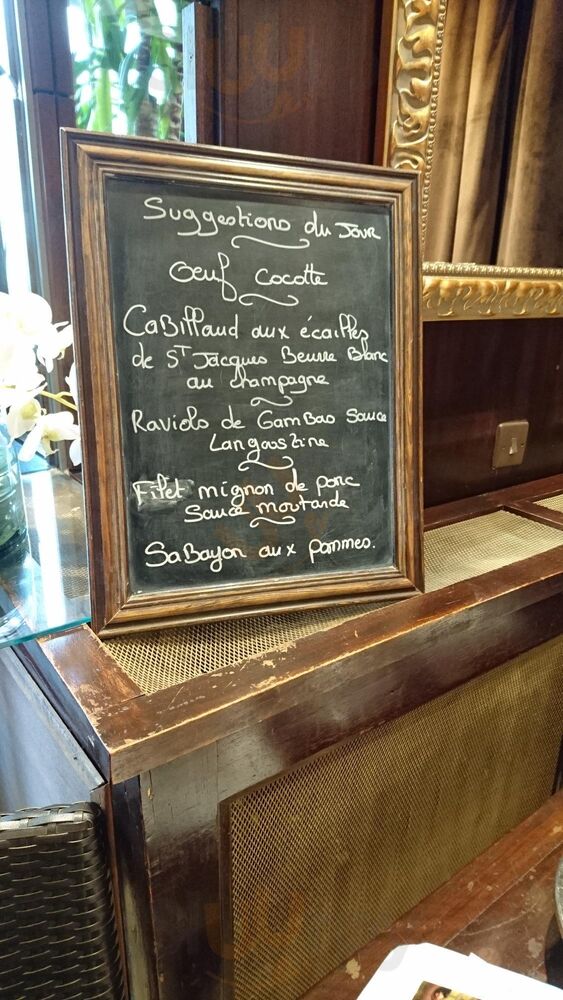 Suggestions du Jour
Oeuf Cocotte
Cabillaud aux écailles
de St Jacques Beurre Blanc
au champagne
Raviolo de Gambas Sauce
Langoustine
Filet mignon de porc
Sauce moutarde
Sabayon aux pommes.